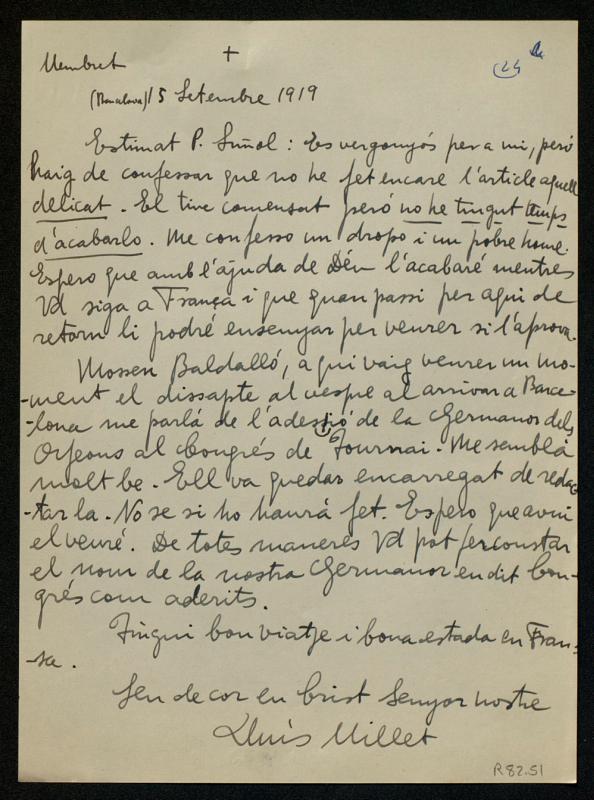 +
24
Membret
(Barcelona) 15 Setembre 1919
Estimat P. Suñol: Es vergonyós per a mi, però
haig de confessar que no he fet encare l'article aquell
delicat. El tinc comensat però no he tingut temps
d'acabarlo. Me confesso un dropo i un pobre home.
Espero que amb l'ajuda de Déu l'acabaré mentres
Vd siga a França i que quan passi per aquí de
retorn li podré ensenyar per veurer si l'aprova.
Mossen Baldalló, a qui vaig veurer un mo-
-ment el dissapte al vespre al arrivar a Barce-
-lona me parlá de l'adessió de la Germanor dels
Orfeons al Congrés de Tournai. Me semblá
molt be. Ell va quedar encarregat de redac-
-tarla. No se si ho haurá fet. Espero que avui
el veuré. De totes maneres Vd pot fer constar
el nom de la nostra Germanor en dit Con-
grés com aderits.
Tingui bon viatje i bona estada en Fran-
-sa.
Seu de cor en Crist Senyor nostre
Lluís Millet
R 82.51